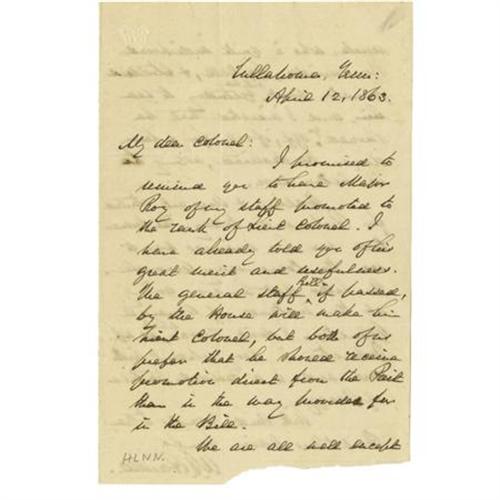 Tullahoma, Tenn:
April 12, 1863.
My dear Colonel:
I promised to
remind you to have Major
Roy of my staff promoted to
the rank of Lieut Colonel. I
have already told you of his
great merit and usefulness.
The general staff Bill if passed,
by the House will make him
Lieut Colonel, but both of us
prefer that he should receive
promotion direct from the Prest
than in the way provided for
in the Bill.
We are all well except
HLNN.